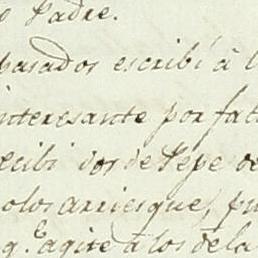 o Padre.
pasados escribí â l
interesante por fal
ecibi dos de Pepe de
olos arriesgue, pu
q.e agite â los dela